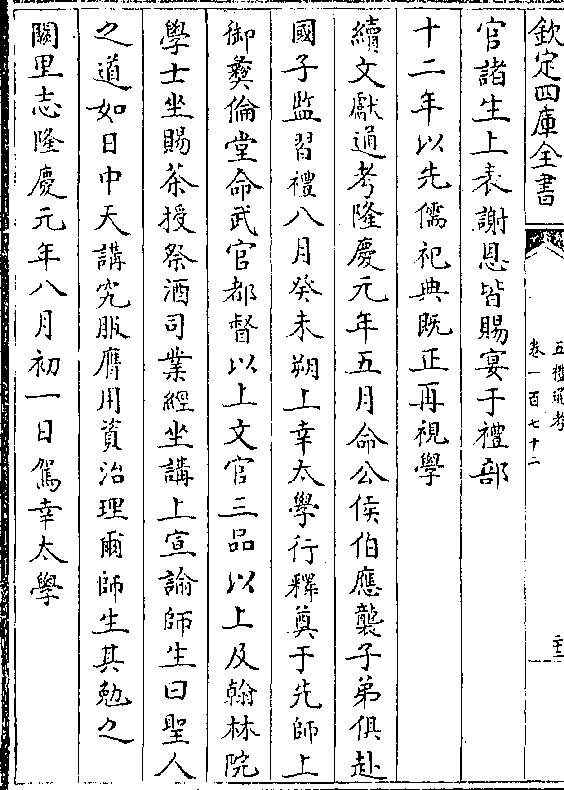 欽定四庫全書
五禮通考
卷一百七十二
二十三
官諸生上表謝恩皆賜宴于禮部
十二年以先儒祀典既正再視學
續文獻通考隆慶元年五月命公侯伯應襲子弟俱赴
國子監習禮八月癸未朔上幸太學行釋奠于先師上
御彝倫堂命武官都督以上文官三品以上及翰林院
學士坐賜茶授祭酒司業經坐講上宣諭師生曰聖人
之道如日中天講究服膺用資治理爾師生其勉之
闕里志隆慶元年八月初一日駕幸太學